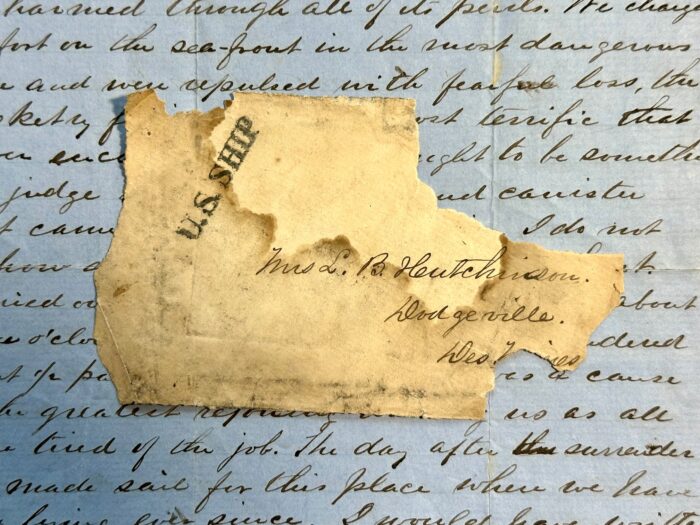 harmed through all of its perils. We charge
fort on the sea-front in the most dangerous
and were repulsed with fearful loss, the
terrific that
to be
judge canister
came I do not
about
o'clo
a cause
greatest us as all
tired of the job. The day after the surrender
made sail for this place where we have
ever since. I would have
U.S. SHIP
Mrs L. B. Hutchinson.
Dodgeville.
Des